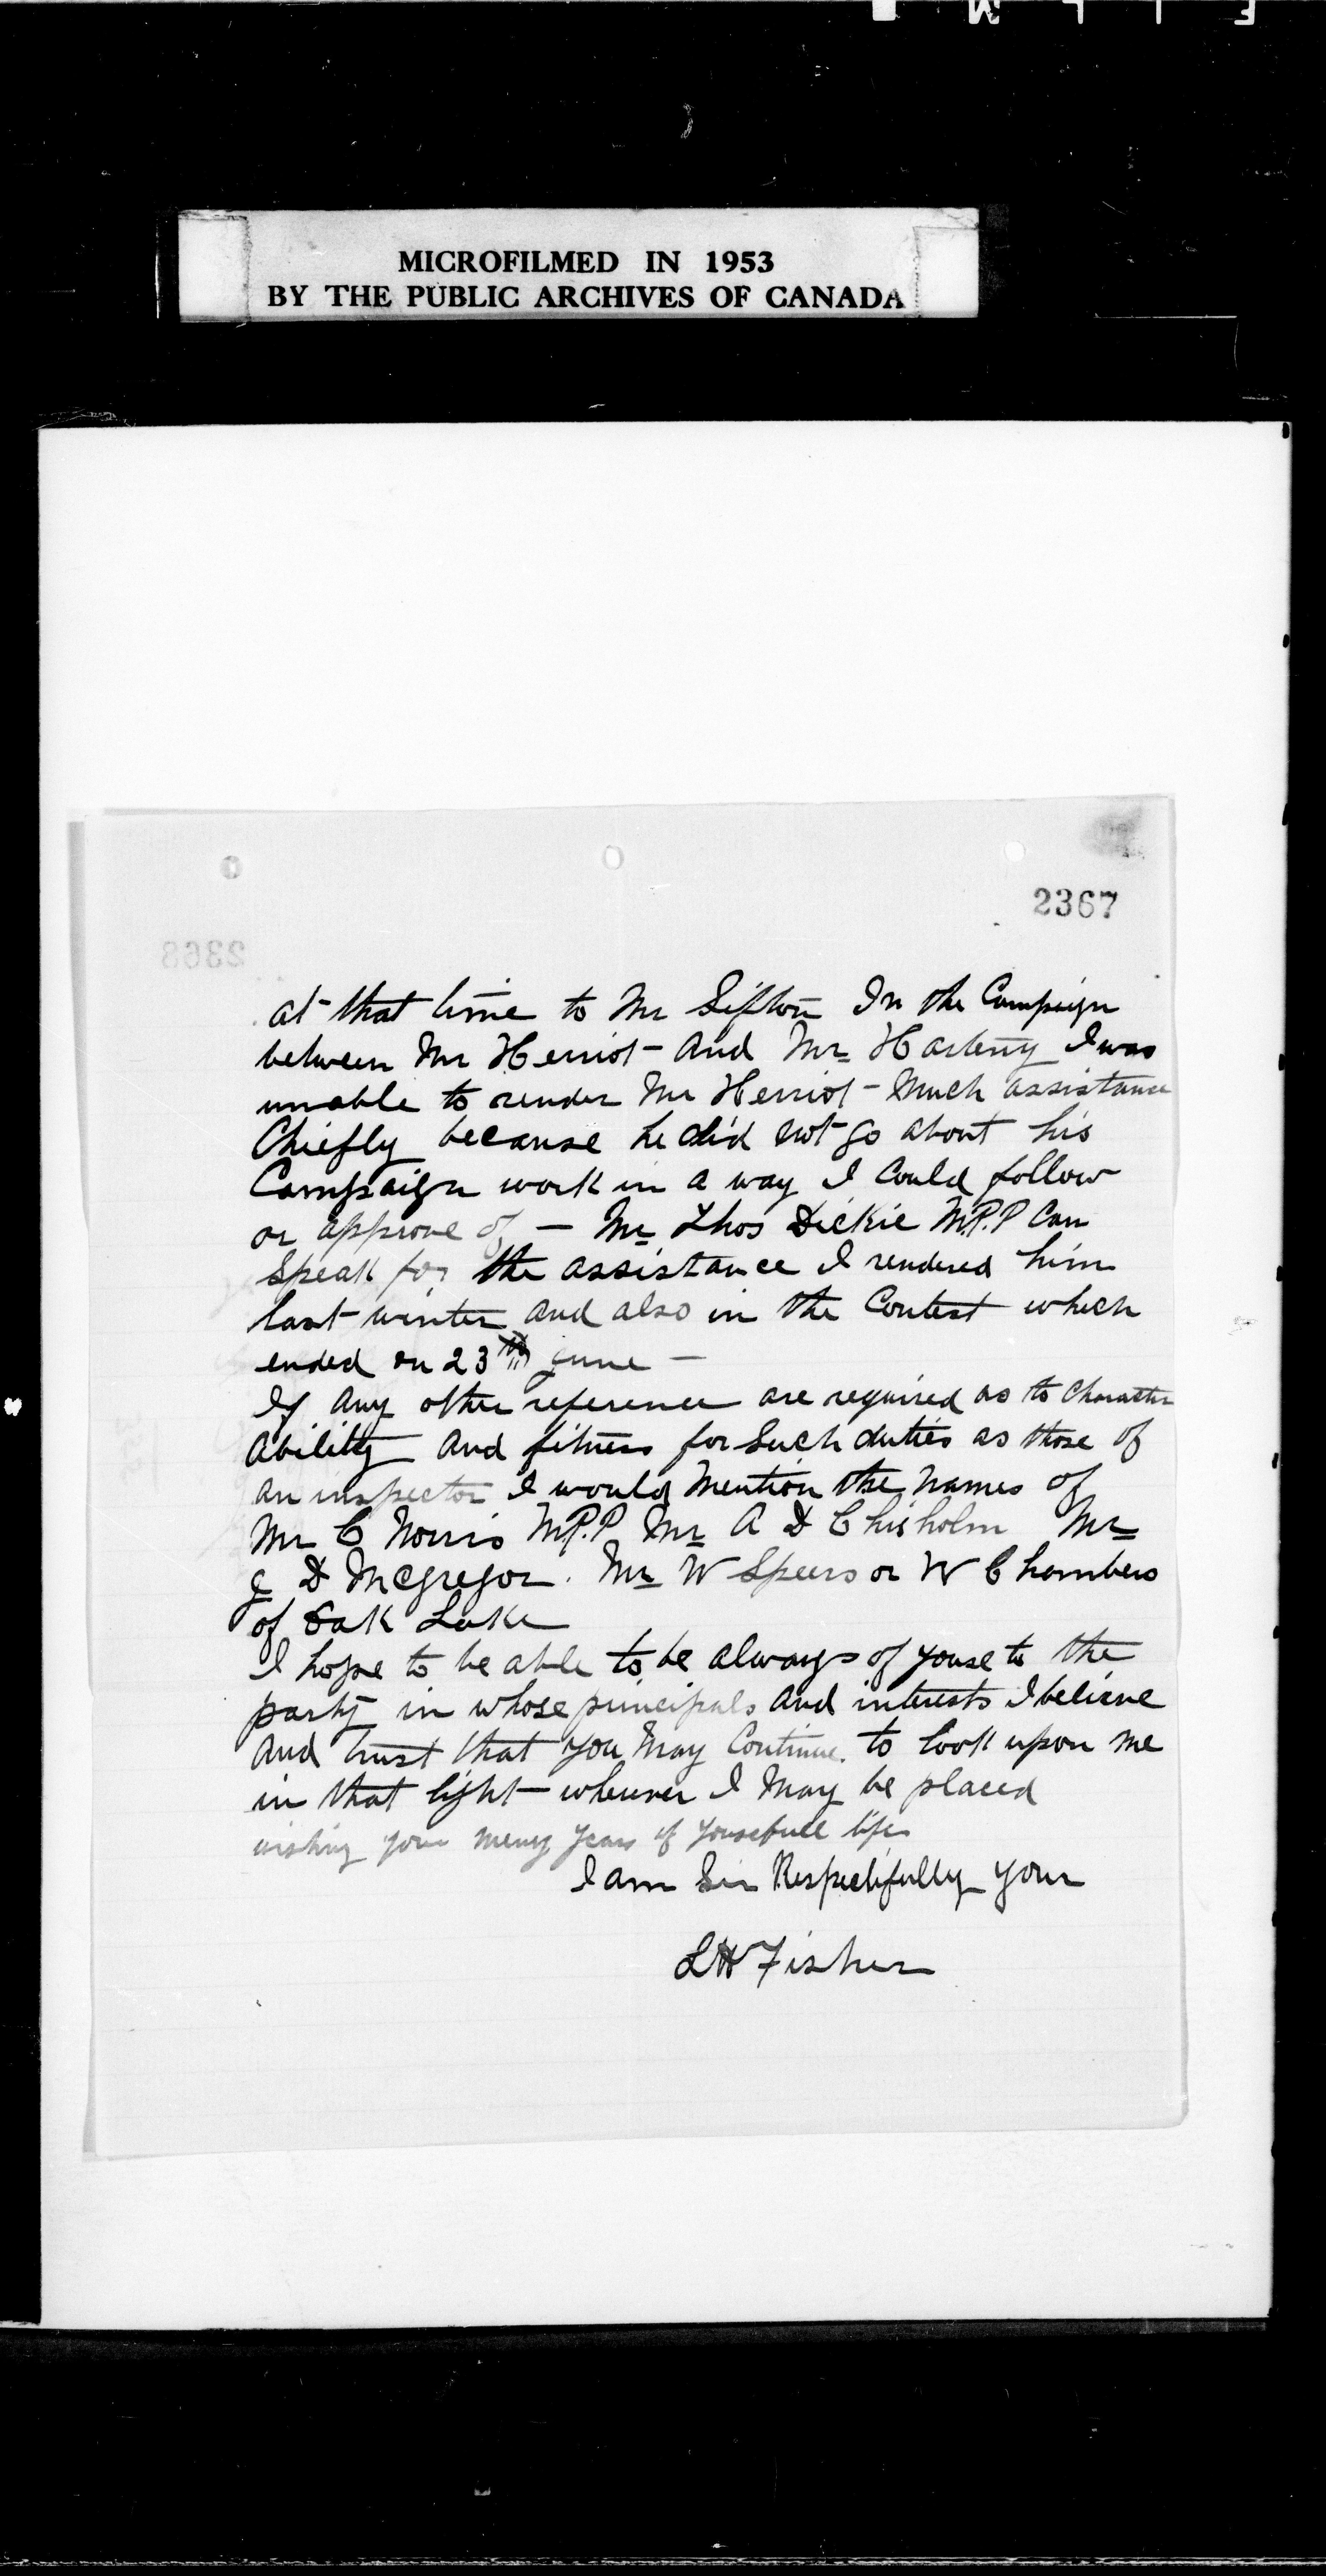 MICROFILMED IN 1953
BY THE PUBLIC ARCHIVES OF CANADA
2367
2368
at that time to Mr Sifton In the Campaign
between Mr Herriot and Mr Harteny I was
unable to render Mr Herriot Much assistance
Chiefly because he did not go about his
Campaign work in a way I Could follow
or approve of — Mr Thos Dickie M.P.P Can
Speak for the assistance I rendered him
last winter and also in the Contest which
ended on 23 June —
If any other reference are required as to Character
ability and fitness for Such duties as those of
an inspector I would Mention the Names of
Mr C Norris M.P.P Mr A D Chisholm Mr
J D McGregor. Mr W Speers or W Chambers
of Oak Lake
I hope to be able to be always of youse to the
party in whose principals and interests I believe
and trust that you May Continue to look upon me
in that light wherever I May be placed
wishing your meny years of yousefull life
I am Sir Respectifully your
L H Fisher